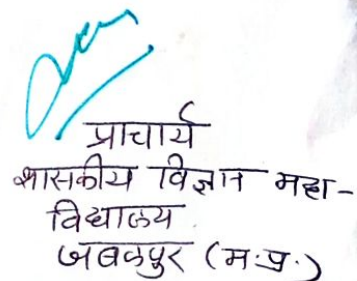 प्राचार्य
शासकीय विज्ञान महा-
विद्यालय
जबलपुर (म.प्र.)